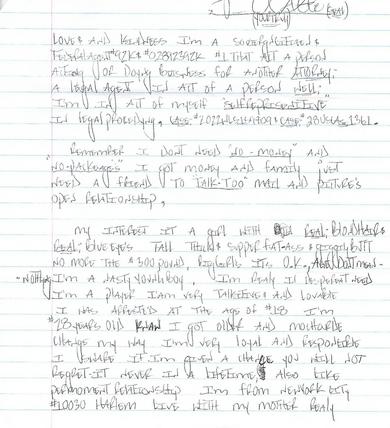 (REAL)
LOVE & AND KINDNESS I'M A SOVEREIGN CITIZEN &
FEDERAL AGENT #92K & #02892392K #1 THAT ACT A PERSON
OR DOING BUSINESS FOR ANOTHER
A LEGAL AGENT IN ACT OF A PERSON WELL;
I'M IN ACT OF MYSELF "SELF REPRESENTIVE"
IN LEGAL PROCEEDING, CASE 28 USCA'S 1361.
REMEMBER I DON'T NEED "NO-MONEY" AND
NO-PACKAGES" I GOT MONEY AND FAMILY "JUST
NEED A FRIEND TO "TALK-TOO" MAIL AND PICTURE'S
OPEN RELATIONSHIP,
MY INTEREST IT A GIRL WITH REAL; BLOND HAIR &
REAL; BLUE EYE'S TALL THICK & SUPPER FAT-ASS & BUTT
NO MORE THE #300 POUND, BIG GIRLS IT'S O.K., MEN-
"NOTHING I'M A NASTY YOUNG BOY, I'M REALY IN DESPERET NEED
I'M A PLAYER I AM VERY TALKETIVE AND LOVABLE
I WAS ARRESTED AT THE AGE OF #18 I'M
#28 YEARS OLD I GOT OLDER AND
CHANGE MY WAY I'M VERY LOYAL AND RESPONSIBLE
I SWARE IF I'M GIVEN A CHANCE YOU WILL NOT
REGRET-IT NEVER IN A LIFETIME, ALSO LIKE
PERMOMENT RELATIONSHIP I'M FROM NEW YORK CITY
#10030 HARLEM LIVE WITH MY MOTHER REALY